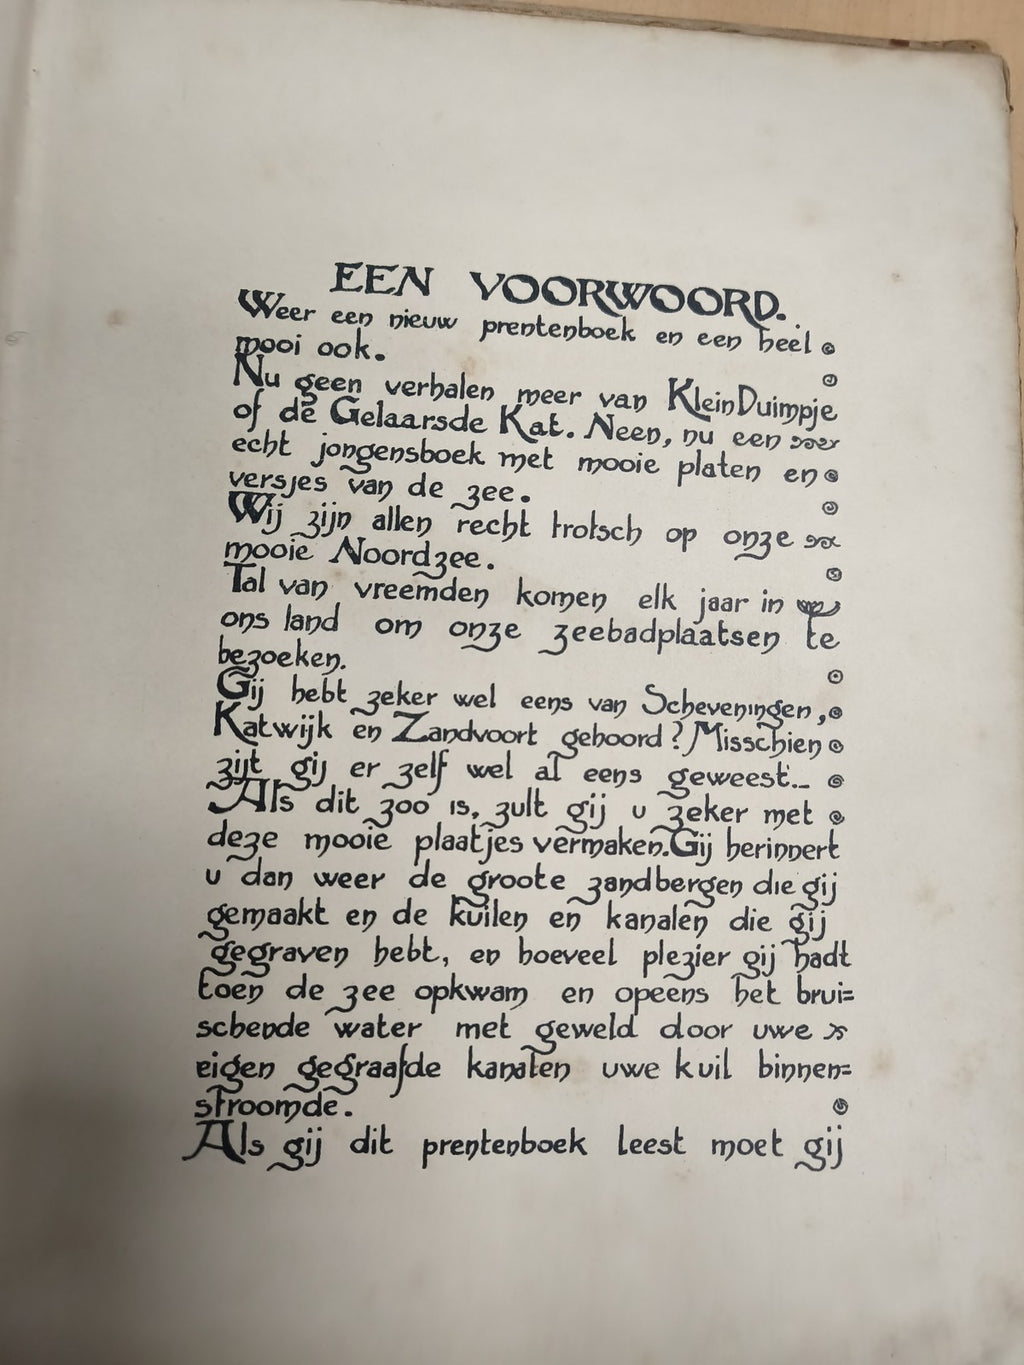 EEN VOORWOORD.
Weer een nieuw prentenboek en een heel
mooi ook.
Nu geen verhalen meer van Klein Duimpje
of de Gelaarsde Kat. Neen, nu een
echt jongensboek met mooie platen en
versjes van de zee.
Wij zijn allen recht trotsch op onze
mooie Noordzee.
Tal van vreemden komen elk jaar in
ons land om onze zeebadplaatsen te
bezoeken.
Gij hebt zeker wel eens van Scheveningen,
Katwijk en Zandvoort gehoord? Misschien
zijt gij er zelf wel al eens geweest._
Als dit zoo is, zult gij u zeker met
deze mooie plaatjes vermaken. Gij herinnert
u dan weer de groote zandbergen die gij
gemaakt en de kuilen en kanalen die gij
gegraven hebt, en hoeveel plezier gij hadt
toen de zee opkwam en opeens het brui=
schende water met geweld door uwe
eigen gegraafde kanalen uwe kuil binnen=
stroomde.
Als gij dit prentenboek leest moet gij